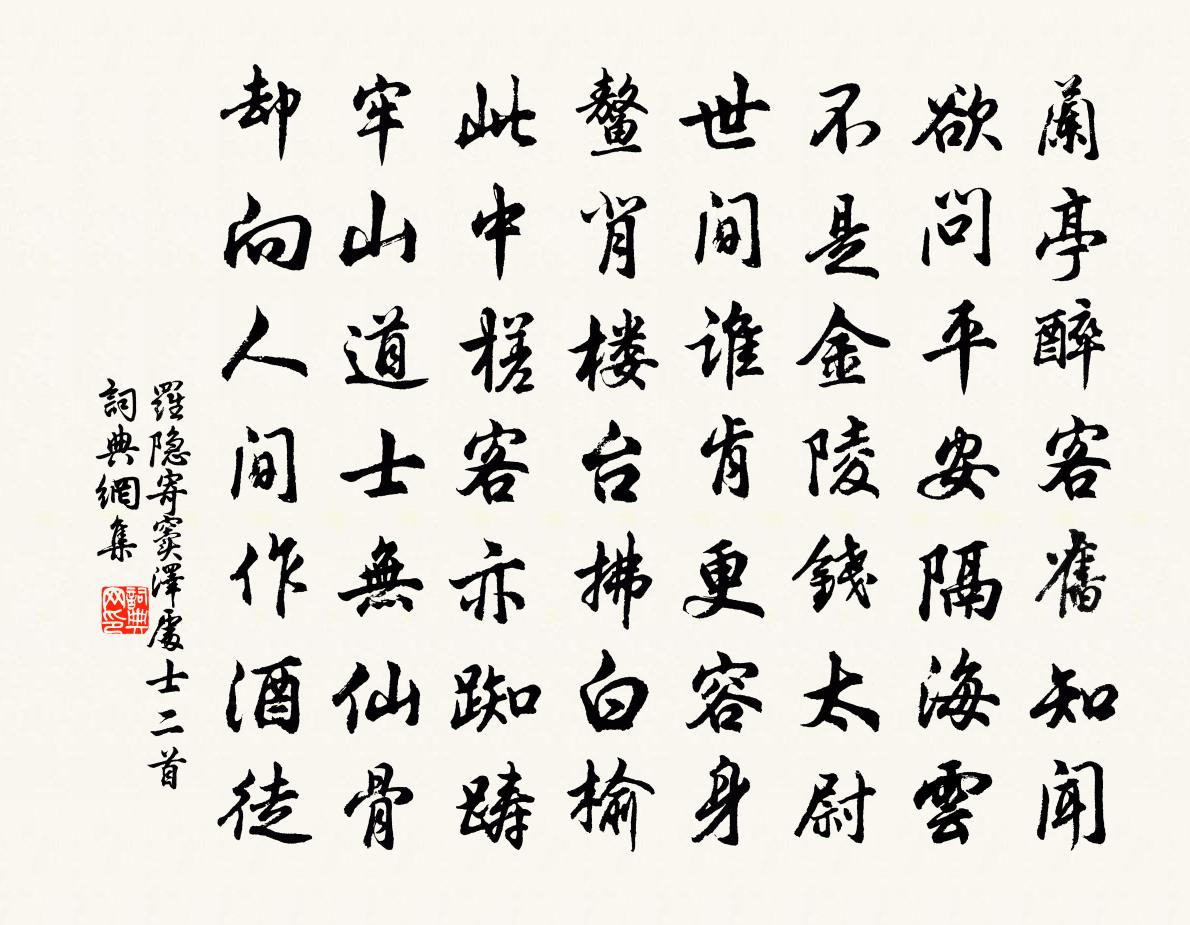 蘭亭醉客舊知聞
欲問平安隔海雲
不是金陵錢太尉
世間誰肯更容身
鼇背樓台拂白榆
此中槎客亦踟躕
牢山道士無仙骨
却向人間作酒徒
羅隐寄竇澤處士二首
詞典網集
詞典网印